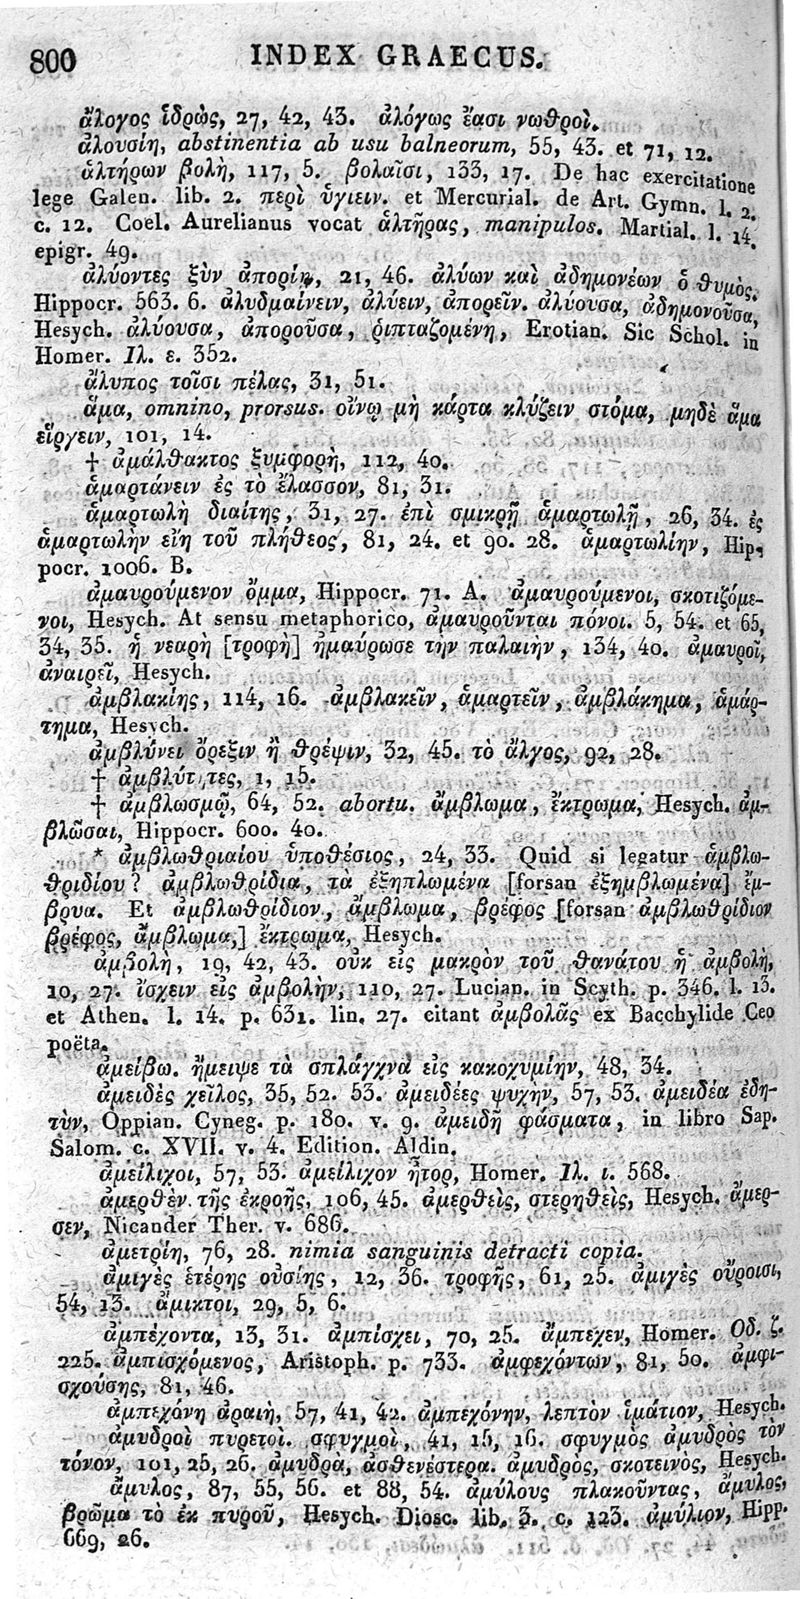 800 INDEX GRAECUS.
ἄλογος ἱδρὼς, 27, 42, 43. ἀλόγως ἔασι νωθροὶ.
ἀλουσίη, abstinentia ab usu balneorum, 55, 43. et 71, 12.
ἁλτήρων βολὴ, 117, 5. βολαῖσι, 133, 17. De hac exercitatione
lege Galen. lib. 2. περὶ ὑγιειν. et Mercurial. de Art. Gymn. l. 2.
c. 12. Coel. Aurelianus vocat ἁλτῆρας, manipulos. Martial. l. 14.
epigr. 49.
ἀλύοντες ξὺν ἀπορίῃ, 21, 46. ἀλύων καὶ ἀδημονέων ὁ θυμὸς.
Hippocr. 563. 6. ἀλυδμαίνειν, ἀλύειν, ἀπορεῖν. ἀλύουσα, ἀδημονοῦσα,
Hesych. ἀλύουσα, ἀποροῦσα, ῥιπταζομένη, Erotian. Sic Schol. in
Homer. Ιλ. ε. 352.
ἄλυπος τοῖσι πέλας, 31, 51.
ἅμα, omnino, prorsus. οἴνῳ μὴ κάρτα κλύζειν στόμα, μηδὲ ἅμα
εἴργειν, 101, 14.
† ἀμάλθακτος ξυμφορὴ, 112, 40.
ἁμαρτάνειν ἐς τὸ ἔλασσον, 81, 31.
ἁμαρτωλὴ διαίτης, 31, 27. ἐπὶ σμικρῇ ἁμαρτωλῇ, 26, 34. ἐς
ἁμαρτωλὴν εἴη τοῦ πλήθεος, 81, 24. et 90. 28. ἁμαρτωλίην, Hip-
pocr. 1006. B.
ἀμαυρούμενον ὄμμα, Hippocr. 71. A. ἀμαυρούμενοι, σκοτιζόμε-
νοι, Hesych. At sensu metaphorico, ἀμαυροῦνται πόνοι. 5, 54. et 65,
34, 35. ἡ νεαρὴ [τροφὴ] ἠμαύρωσε τὴν παλαιὴν, 134, 40. ἀμαυροῖ,
ἀναιρεῖ, Hesych.
ἀμβλακίης, 114, 16. ἀμβλακεῖν, ἁμαρτεῖν, ἀμβλάκημα, ἁμάρ-
τημα, Hesych.
ἀμβλύνει ὄρεξιν ἢ θρέψιν, 32, 45. τὸ ἄλγος, 92, 28.
† ἀμβλύτ τες, 1, 15.
† ἀμβλωσμῷ, 64, 52. abortu. ἄμβλωμα, ἔκτρωμα, Hesych. ἀμ-
βλῶσαι, Hippocr. 600. 40.
* ἀμβλωθριαίου ὑποθέσιος, 24, 33. Quid si legatur ἀμβλω-
θριδίου? ἀμβλωθρίδια, τὰ ἐξηπλωμένα [forsan ἐξημβλωμένα] ἔμ-
βρυα. Et ἀμβλωθρίδιον, ἄμβλωμα, βρέφος [forsan ἀμβλωθρίδιον
βρέφος, ἄμβλωμα,] ἔκτρωμα, Hesych.
ἀμβολὴ, 19, 42, 43. οὐκ εἰς μακρὸν τοῦ θανάτου ἡ ἀμβολὴ,
10, 27. ἴσχειν εἰς ἀμβολὴν, 110, 27. Lucian. in Scyth. p. 346. l. 13.
et Athen. l. 14. p. 631. lin. 27. citant ἀμβολᾶς ex Bacchylide Ceo
poëta.
ἀμείβω. ἤμειψε τὰ σπλάγχνα εἰς κακοχυμίην, 48, 34.
ἀμειδὲς χεῖλος, 35, 52. 53. ἀμειδέες ψυχὴν, 57, 53. ἀμειδέα ἐδη-
τὺν, Oppian. Cyneg. p. 180. v. 9. ἀμειδῆ φάσματα, in libro Sap.
Salom. c. XVII. v. 4. Edition. Aldin.
ἀμείλιχοι, 57, 53. ἀμείλιχον ἦτορ, Homer. Ιλ. ι. 568.
ἀμερθὲν τῆς ἐκροῆς, 106, 45. ἀμερθεὶς, στερηθεὶς, Hesych. ἄμερ-
σεν, Nicander Ther. v. 686.
ἀμετρίη, 76, 28. nimia sanguinis detracti copia.
ἀμιγὲς ἑτέρης οὐσίης, 12, 36. τροφῆς, 61, 25. ἀμιγὲς οὔροισι,
54, 13. ἄμικτοι, 29, 5, 6.
ἀμπέχοντα, 13, 31. ἀμπίσχει, 70, 25. ἄμπεχεν, Homer. Οδ. ζ.
225. ἀμπισχόμενος, Aristoph. p. 733. ἀμφεχόντων, 81, 50. ἀμφι-
σχούσης, 81, 46.
ἀμπεχόνη ἀραιὴ, 57, 41, 42. ἀμπεχόνην, λεπτὸν ἱμάτιον, Hesych.
ἀμυδροὶ πυρετοί. σφυγμοὶ, 41, 15, 16. σφυγμὸς ἀμυδρὸς τὸν
τόνον, 101, 25, 26. ἀμυδρὰ, ἀσθενέστερα. ἀμυδρὸς, σκοτεινὸς, Hesych.
ἄμυλος, 87, 55, 56. et 88, 54. ἀμύλους πλακοῦντας, ἄμυλος,
βρῶμα τὸ ἐκ πυροῦ, Hesych. Diosc. lib. 3. c. 123. ἀμύλιον, Hipp.
669, 26.